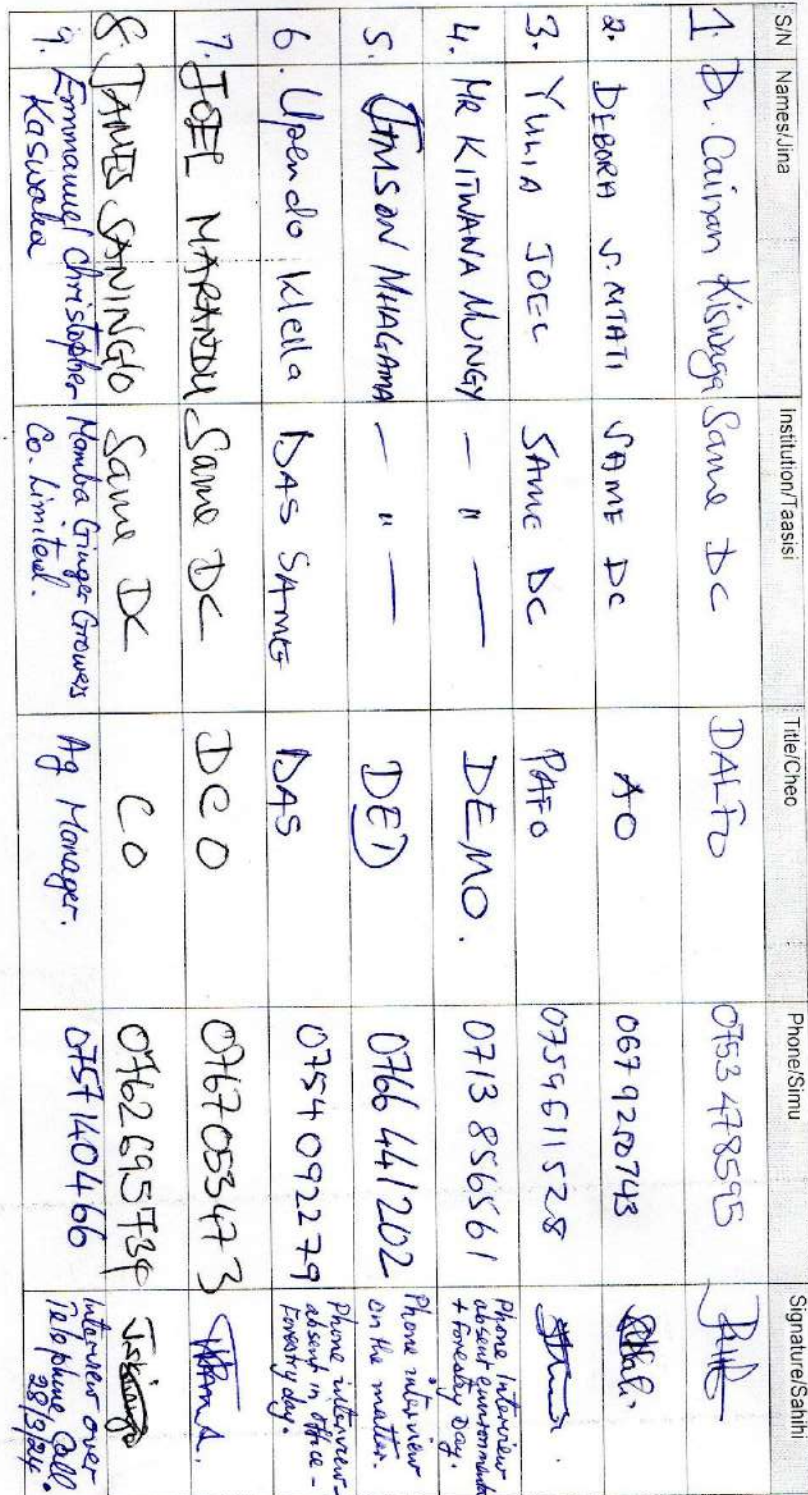 S/N Names/Jina Institution/Taasisi Title/Cheo Phone/Simu Signature/Sahihi
1. Dr. Cainan Kiswaga Same DC DALFO 0753 478595
2. DEBORA S. MTATI SAME DC AO 0679250743
3. YULIA JOEL SAME DC PAFO 0759611528
4. MR KITWANA MUNGY — " — DEMO. 0713 856561 Phone Interview absent environment + Forestry Day.
5. JIMSON MHAGAMA — " — DED 0766 441202 Phone interview on the matter.
6. Upendo Klella DAS SAME DAS 0754 092279 Phone interview - absent in office - Forestry day.
7. JOEL MARANDU Same DC DCO 0767053473
8. JAMES SANINGO Same DC CO 0762695734
9. Emmanuel Christopher Kaswaka Mamba Ginger Growers Co. Limited. Ag Manager. 0757140466 Interview over Telephone Call 28/3/24.